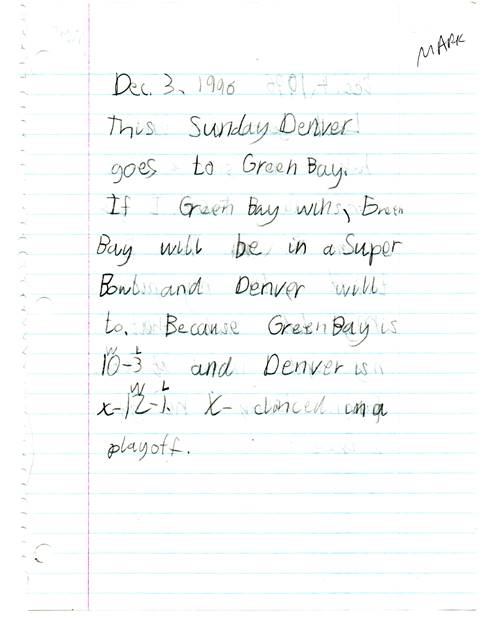 MARK
Dec. 3, 1996
This Sunday Denver
goes to Green Bay.
If Green Bay wins, Green
Bay will be in a Super
Bowl and Denver will
to. Because Green Bay is
W L
10-3 and Denver is
W L
x-12-1. X- clinced in a
playoff.